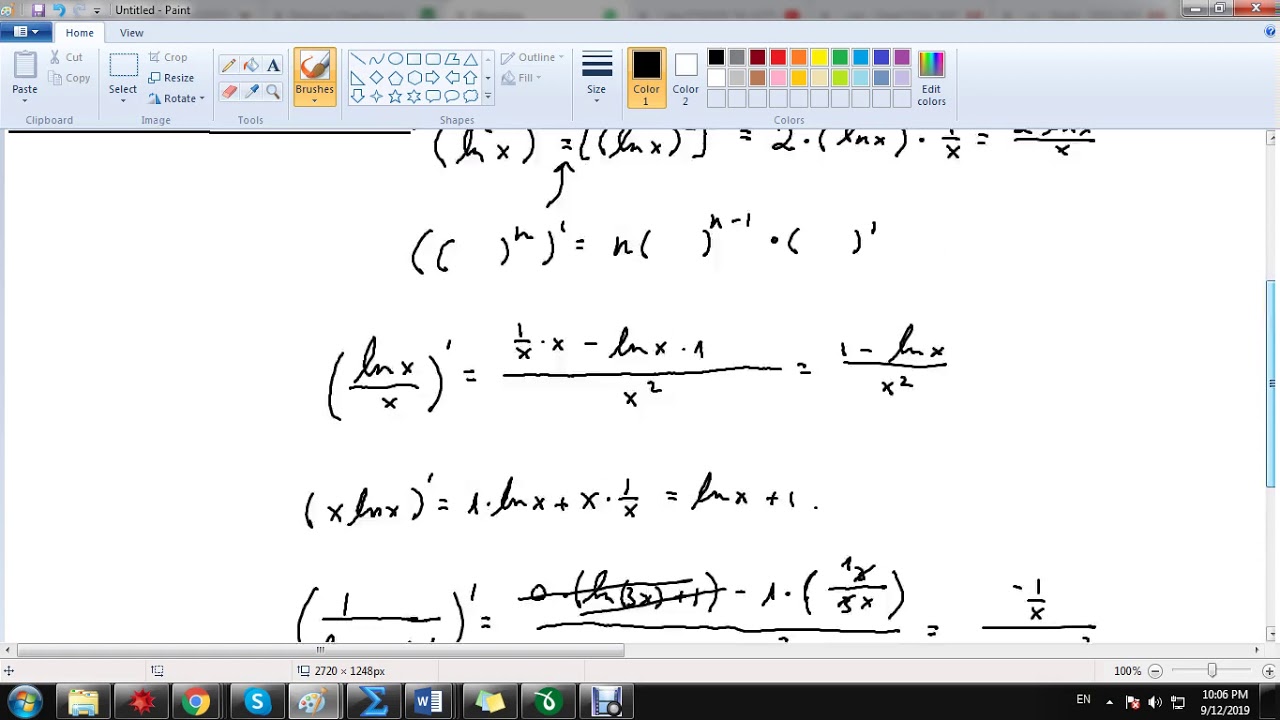 Untitled - Paint
Home View
Paste
Cut
Copy
Clipboard
Select
Crop
Resize
Rotate
Image
Tools
Brushes
Shapes
Outline
Fill
Size
Color 1
Color 2
Edit colors
Colors
(ln x) = [(ln x) ] = 2·(ln x)·1/x =
(( )^n)' = n( )^(n-1)·( )'
(ln x/x)' = (1/x·x - ln x·1)/x^2 = (1 - ln x)/x^2
(x ln x)' = 1·ln x + x·1/x = ln x + 1.
(1/ )' = 0·(ln(3x)+1) - 1·( ) = -1/x
2720 × 1248px
100%
EN
10:06 PM
9/12/2019